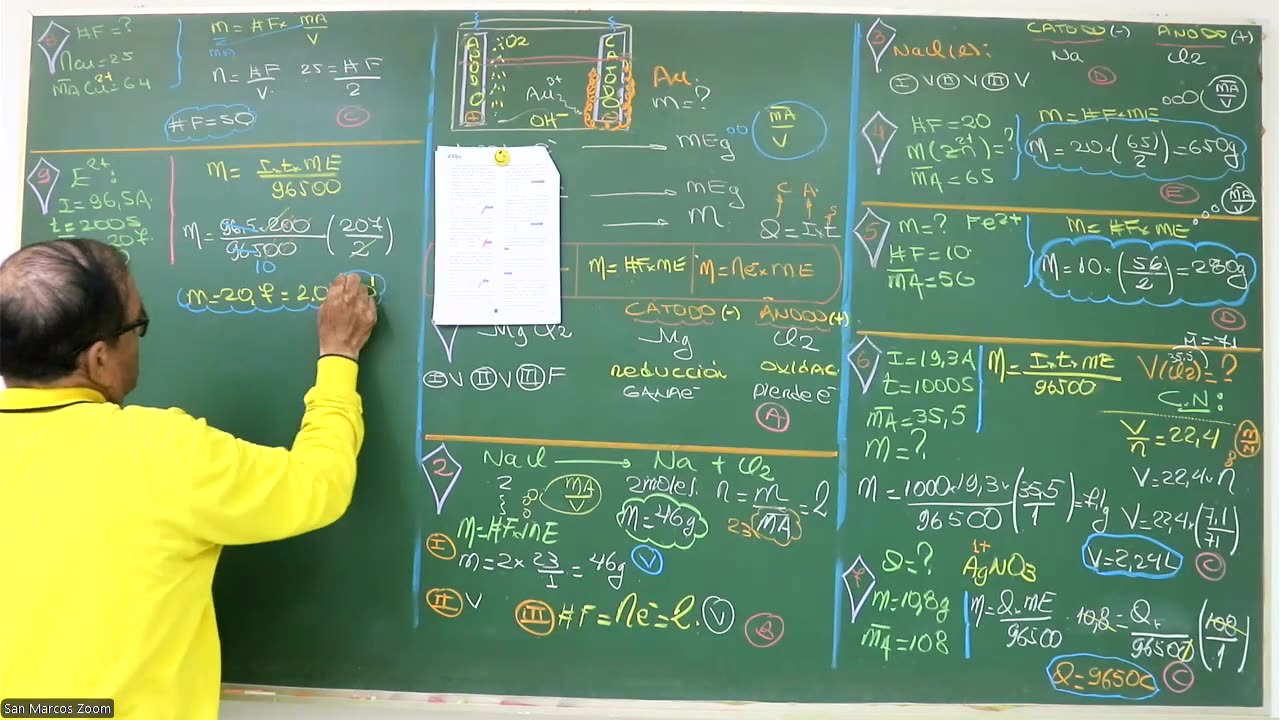 8
#F=?
ncu=25
mA Cu²⁺=64
m = #Fx mA/V
mA
n = #F/V 25 = #F/2
#F=50
C
9
E²⁺:
I=96,5A
m = I.t.mE/96500
m = 965.200/96500 (207/2)
10
m=20,7=20
O2
Au³⁺
OH⁻
ANODO +
CATODO
Au:
m=?
mEq
mA/V
mEq
m
C A
Q=I.t
m=#FxmE
m=ne⁻xmE
CATODO (-) ÁNODO (+)
MgCl2 Mg Cl2
I V II V III F
REDUCCIÓN OXIDAC
GANAe⁻ Pierde e⁻
A
2
NaCl → Na + Cl2
2 2moles n = m/mA = 2
mA/V
m=46g
23
I
m=#FxmE
m=2x 23/1 = 46g V
II V
III #F=ne⁻=2. V
B
3
NaCl(l):
CATODO (-) ÁNODO (+)
Na Cl2
I V II V III V
D
mA/V
4
#F=20
m(Zn²⁺)=?
mA=65
m=#FxmE
m=20.(65/2)=650g
E
mA
5
m=? Fe²⁺
#F=10
mA=56
m=#FxmE
D
6
I=19,3A
t=1000s
mA=35,5
m=?
m = I.t.mE/96500
M=71
35,5
V(Cl2)=?
C.N:
V/n=22,4
m/M
V=22,4.n
m=1000.19,3/96500 (35,5/1)=7,1g
V=22,4(7,1/71)
V=2,24L
C
7
Q=?
1+
AgNO3
m=10,8g
mA=108
m=Q.mE/96500
10,8=Q/96500 (108/1)
Q=9650C
C
San Marcos Zoom